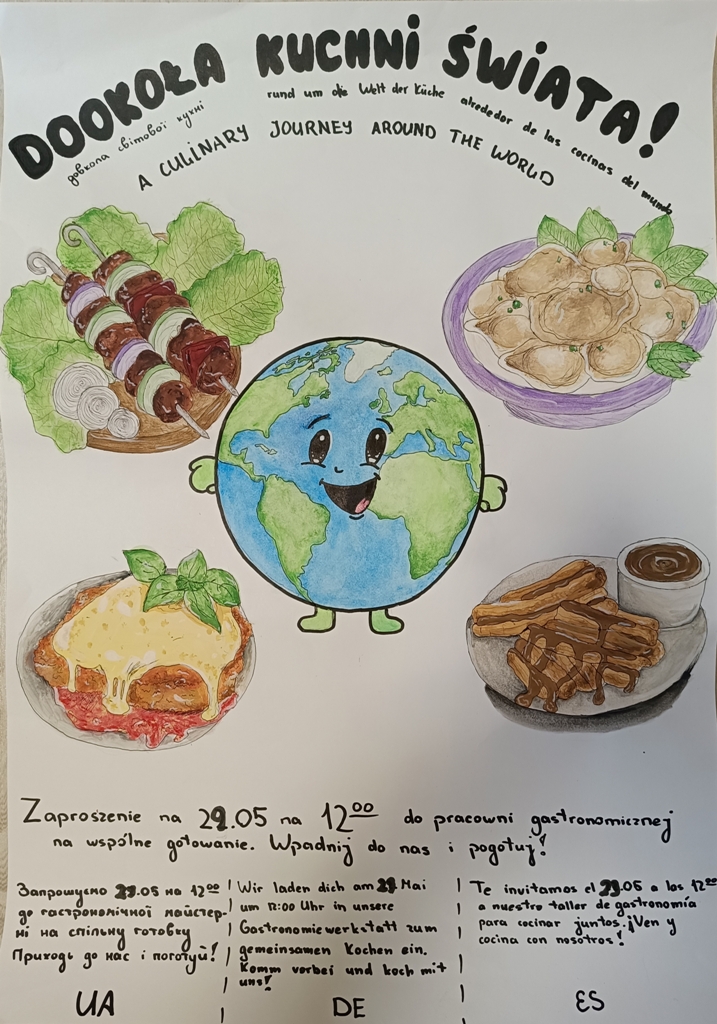 DOOKOŁA KUCHNI ŚWIATA!
довкола світової кухні
rund um die Welt der Küche
alrededor de las cocinas del mundo
A CULINARY JOURNEY AROUND THE WORLD
Zaproszenie na 29.05 na 12⁰⁰ do pracowni gastronomicznej
na wspólne gotowanie. Wpadnij do nas i pogotuj!
Запрошуємо 29.05 на 12⁰⁰
до гастрономічної майстер-
ні на спільну готовку
Приходь до нас і поготуй!
UA
Wir laden dich am 29 Mai
um 12:00 Uhr in unsere
Gastronomiewerkstatt zum
gemeinsamen Kochen ein.
Komm vorbei und koch mit
uns!
DE
Te invitamos el 29.05 a las 12⁰⁰
a nuestro taller de gastronomía
para cocinar juntos. ¡Ven y
cocina con nosotros!
ES